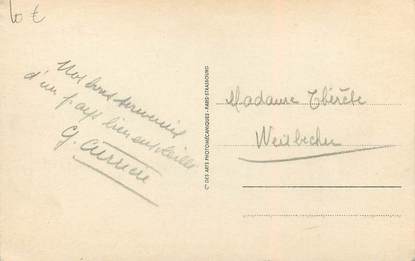 10 €
Nos bons souvenirs
d'un pays bien ensoleillé
G.
Cie DES ARTS PHOTOMÉCANIQUES - PARIS-STRASBOURG
Madame Thérèse